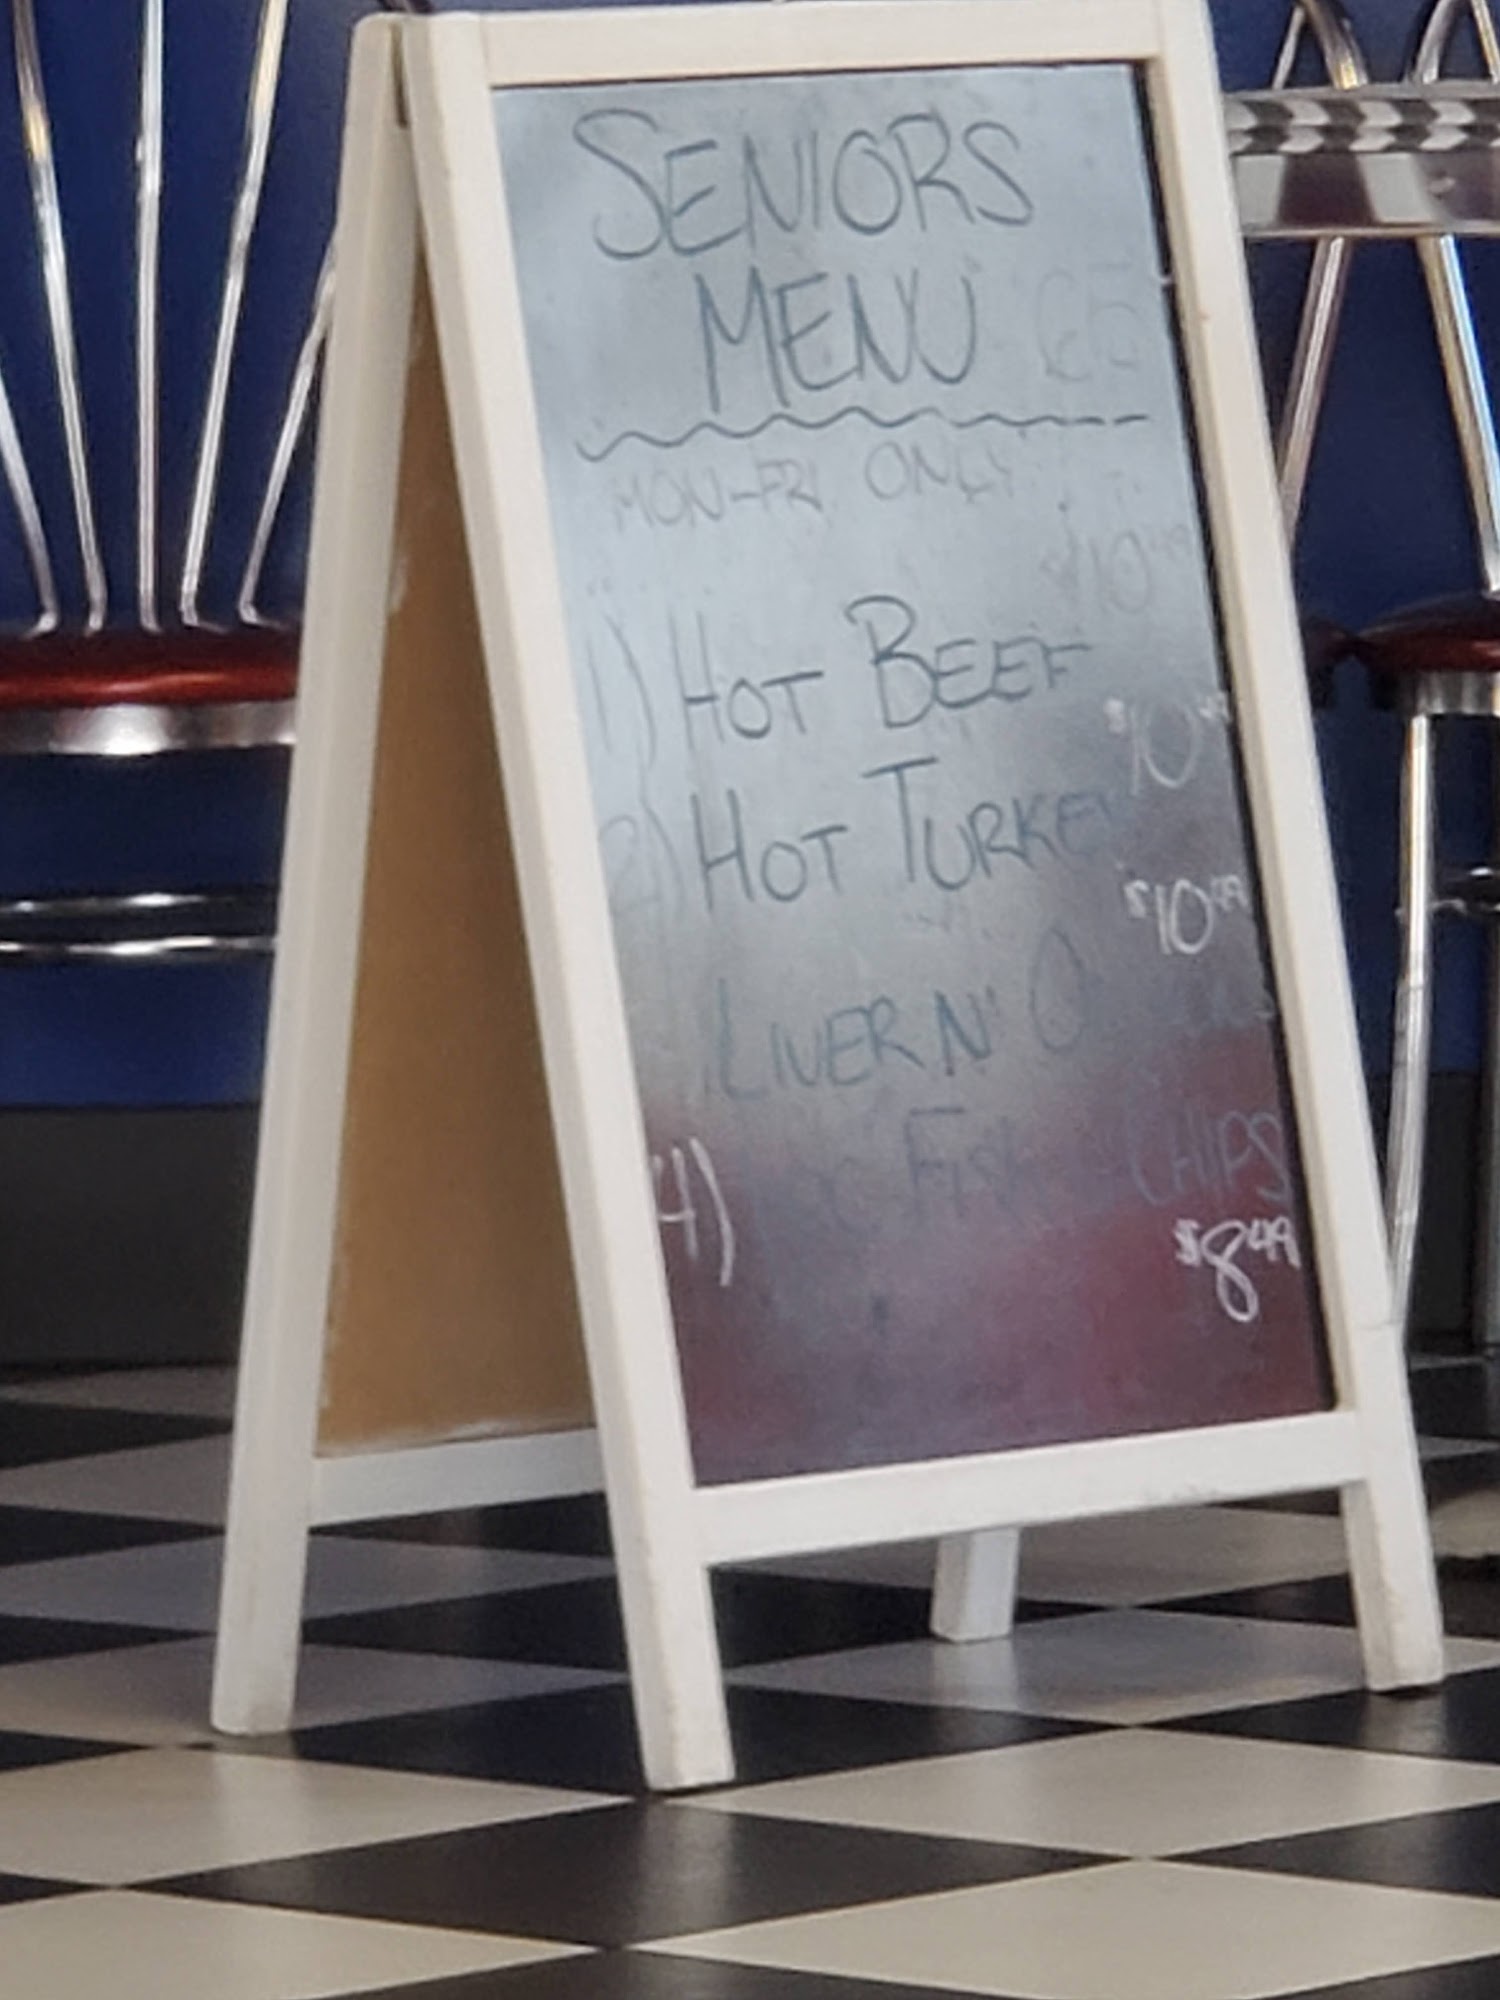 SENIORS
MENU
MON-FRI ONLY
1) HOT BEEF
$10
2) HOT TURKEY
$10
LIVER N'
4) FISH CHIPS
$8.49